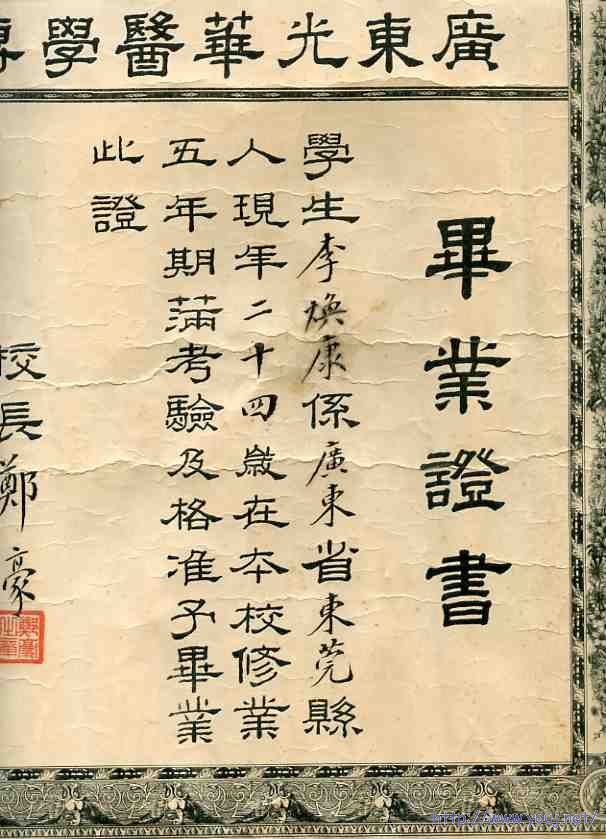 廣東光華醫學專
畢業證書
學生李煥康係廣東省東莞縣
人現年二十四歲在本校修業
五年期滿考驗及格准予畢業
此證
校長鄭豪
http://www.ycgj.net/